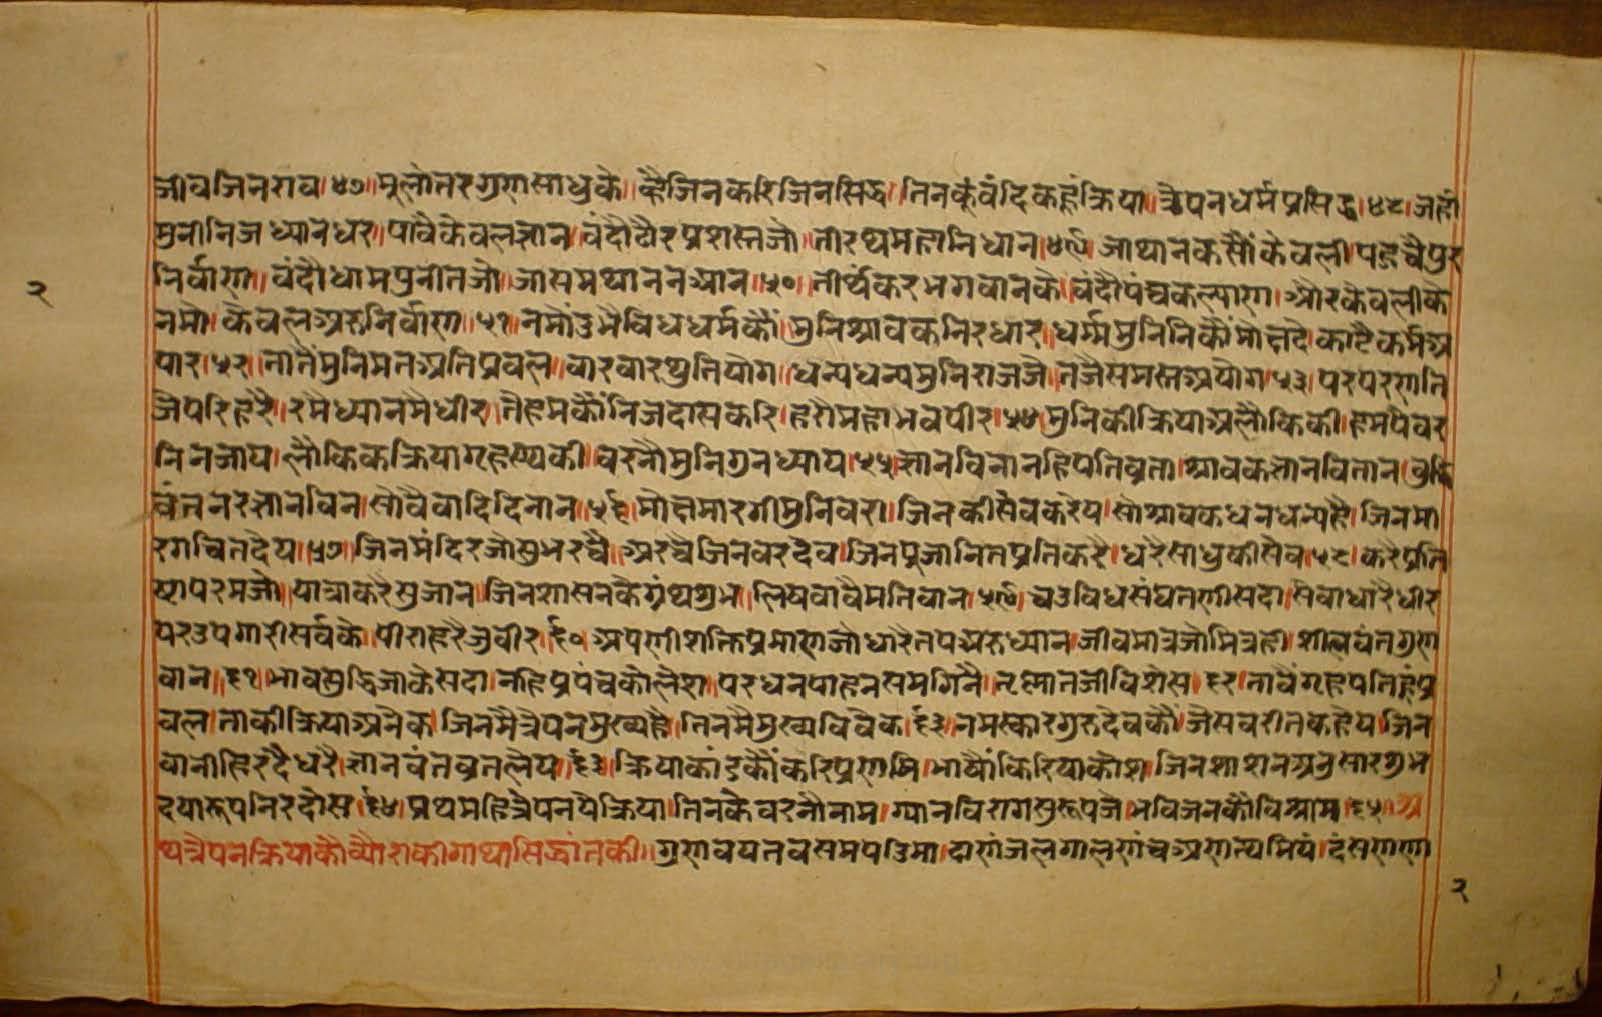 जीवजिनराव।४७। मूलोतरगुणसाधुके। व्हैजिनकरिजिनसिद्ध। तिनकूंवंदिकहूंक्रिया। त्रेपनधर्मप्रसिद्ध।४८। जहां
मुनीनिजध्यानधर। पावैकेवलज्ञान। वंदौठौरप्रशस्तजो। तीरथमहानिधान।४९। जाथानकसौंकेवली। पहूचैपुर
निर्वाण। वंदौधामपुनीतजो। जासमथाननआन।५०। तीर्थंकरभगवानके। वंदौपंचकल्याण। औरकेवलीके
नमौ। केवलअरुनिर्वाण।५१। नमौंउभैविधधर्मकौं। मुनिश्रावकनिरधार। धर्म्ममुनिनिकौंमोक्षदे। काटैकर्मअ
पार।५२। तातैंमुनिमतअतिप्रवल। वारवारथुतियोग। धन्यधन्यमुनिराजजे। तजैसमस्तअयोग।५३। परपरणति
जेपरिहरै। रमैध्यानमैधीर। तेहमकौंनिजदासकरि। हरौमहाभवपीर।५४। मुनिकीक्रियाअलौकिकी। हमपैवर
निनजाय। लौकिकक्रियागृहस्थकी। वरनौमुनिगुनध्याय।५५। ज्ञानविनानहियतिव्रता। श्रावकज्ञानवितान। बुद्धि
वंतनरज्ञानविन। षोवैवादिदिनान।५६। मोक्षमारगीमुनिवरा। जिनकीसेवकरेय। सोश्रावकधनधन्यहै। जिनमा
रगचितदेय।५७। जिनमंदिरजोशुभरचै। अरचैजिनवरदेव। जिनपूजानितप्रतिकरै। धरैसाधुकीसेव।५८। करैप्रति
ष्ठापरमजो। यात्राकरैसुजान। जिनशासनकेग्रंथशुभ। लिषवावैमतिवान।५९। चउविधसंघतणीसदा। सेवाधारैधीर
परउपगारीसर्वके। पीराहरैजुवीर।६०। अपणीशक्तिप्रमाणजो। धारैतपअरुध्यान। जीवमात्रजोमित्रहो। शीलवंतगुण
वान।६१। भावसुद्धिजाकेसदा। नहिप्रपंचकोलेश। परधनपाहनसमगिनै। तृस्नातजीविशेस।६२। तावैंगृहपतिहूंप्र
वल। ताकीक्रियाअनेक। जिनमैत्रेपनमुख्यहै। तिनमैमुख्यविवेक।६३। नमस्कारगुरुदेवकौं। जेसवरीतकहेय। जिन
वानीहिरदैधरै। ज्ञानवंतव्रतलेय।६३। क्रियाकांडकौंकरिप्रणमि। भाषोंकिरियाकोश। जिनशाशनअनुसारशुभ
दयारूपनिरदोस।६४। प्रथमहित्रेपनपैक्रिया। तिनकेवरनौनाम। ग्यानविरागसुरूपजे। भविजनकौंविश्राम।६५। अ
थत्रेपनक्रियाकौव्यौराकीगाथासिद्धांतकी। गुणवयतवसमपडिमा। दाणंजलगालणंचअणत्थमियं। दंसणणा
२
२